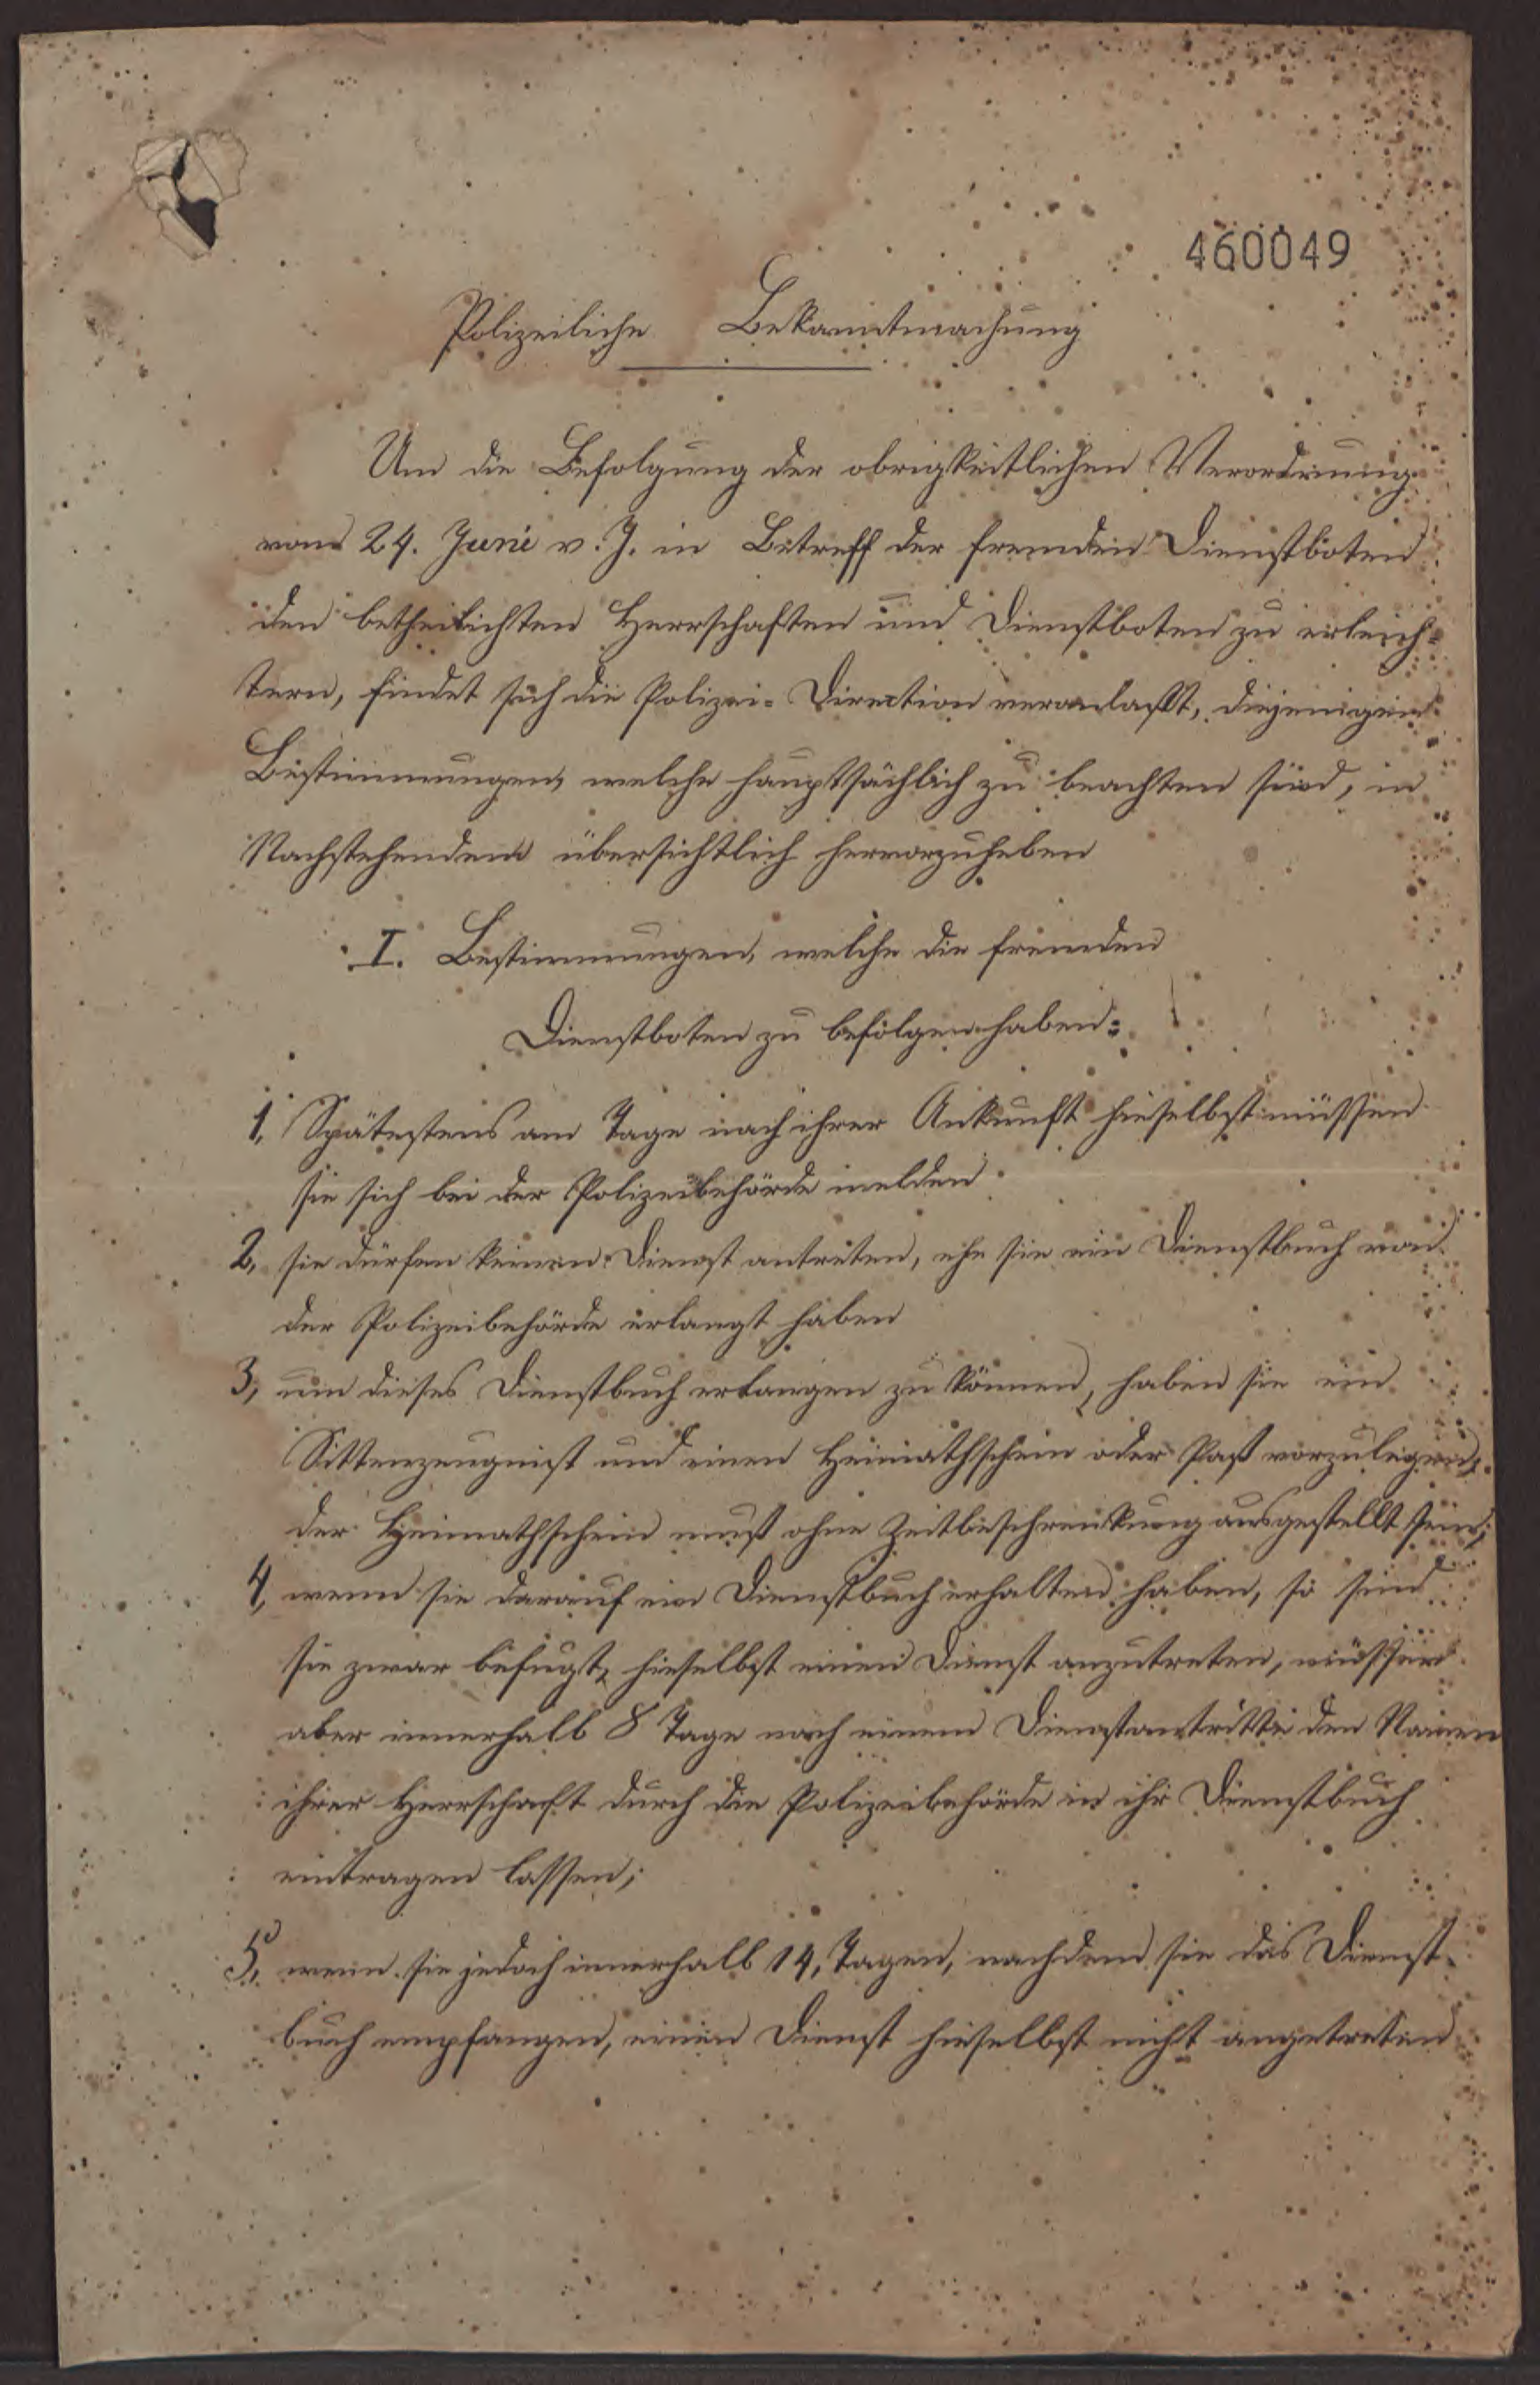 460049
Polizeiliche Bekanntmachung
Um die Befolgung der obrigkeitlichen Verordnung
vom 24. Juni v. J. in Betreff der fremden Dienstboten
den betheilichten Herrschaften und Dienstboten zu erleich=
tern, findet sich die Polizei=Direction veranlaßt, diejenigen
Bestimmungen, welche hauptsächlich zu beachten sind, in
Nachstehendem übersichtlich hervorzuheben
I. Bestimmungen, welche die fremden
Dienstboten zu befolgen haben:
1, Spätestens am Tage nach ihrer Ankunft hieselbst müssen
sie sich bei der Polizeibehörde melden
2, sie dürfen keinen Dienst antreten, ehe sie ein Dienstbuch von
der Polizeibehörde erlangt haben
3, um dieses Dienstbuch erlangen zu können, haben sie ein
Sittenzeugnist und einen Heimathschein oder Paß vorzulegen,
der Heimathschein muß ohne Zeitbeschrenkung ausgestellt sein;
4, wenn sie darauf ein Dienstbuch erhalten haben, so sind
sie zwar befugt, hieselbst einen Dienst anzutreten, müssen
aber innerhalb 8 Tage nach einem Dienstantritte den Namen
ihrer Herrschaft durch die Polizeibehörde in ihr Dienstbuch
eintragen lassen;
5, wenn sie jedoch innerhalb 14, Tagen, nachdem sie das Dienst=
buch empfangen, einen Dienst hieselbst nicht angetreten